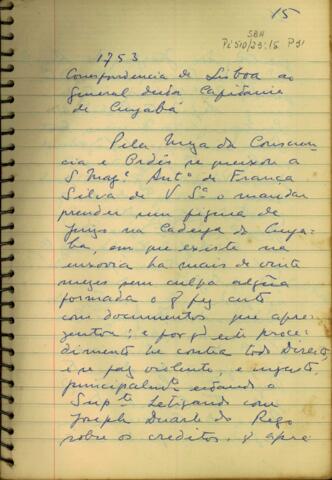 15
SBH
Pi 510/29.15 P 91
1753
Correspondencia de Lisboa ao
general desta Capitania
de Cuyabá
Pela Meza da Conscien-
cia e Ordẽs se queixou a
S Mag.e Ant.o de França
Silva de V Sª o mandar
prender em figura de
juizo na Cadeya do Cuya-
ba, em que existe na
enxovia ha mais de vinte
mezes sem culpa algũa
formada o q fez certo
com documentos que apre-
zentou; e por q̃ este proce-
dimento he contra todo Direito,
e se faz violento, e injusto,
principalm.te estando o
Sup.te Letigando com
Joseph Duarte do Rego
sobre os creditos, q apre